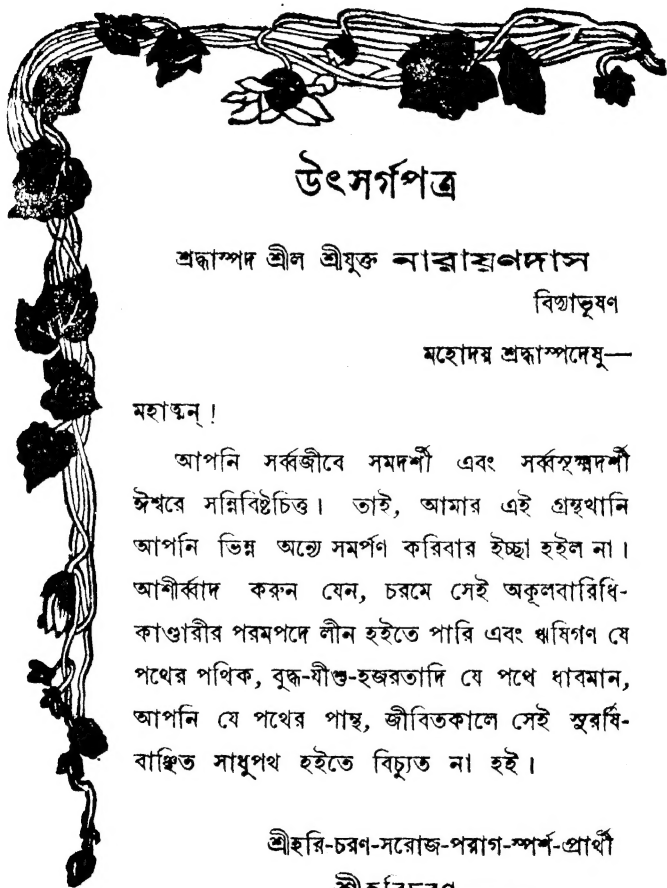 উৎসর্গপত্র
শ্রদ্ধাস্পদ শ্রীল শ্রীযুক্ত নারায়ণদাস
বিদ্যাভূষণ
মহোদয় শ্রদ্ধাস্পদেষু—
মহাত্মন্ !
আপনি সর্ব্বজীবে সমদর্শী এবং সর্ব্বসূক্ষ্মদর্শী
ঈশ্বরে সন্নিবিষ্টচিত্ত। তাই, আমার এই গ্রন্থখানি
আপনি ভিন্ন অন্যে সমর্পণ করিবার ইচ্ছা হইল না।
আশীর্ব্বাদ করুন যেন, চরমে সেই অকূলবারিধি-
কাণ্ডারীর পরমপদে লীন হইতে পারি এবং ঋষিগণ যে
পথের পথিক, বুদ্ধ-যীশু-হজরতাদি যে পথে ধাবমান,
আপনি যে পথের পান্থ, জীবিতকালে সেই সুরর্ষি-
বাঞ্ছিত সাধুপথ হইতে বিচ্যুত না হই।
শ্রীহরি-চরণ-সরোজ-পরাগ-স্পর্শ-প্রার্থী
শ্রীহরিচরণ